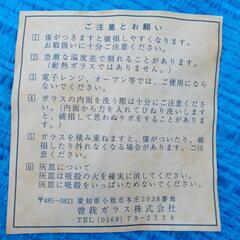 ご注意とお願い
1 傷がつきますと破損しやすくなります。
お取扱いに十分ご注意ください。
2 急激な温度差で割れることがあります。
(耐熱ガラスではありません。)
3 電子レンジ、オーブン等では、ご使用になら
ないでください。
4 ガラスの内面を洗う際は十分にご注意くださ
い。(内面から力を入れてひねり洗いしますと、
破損して思わぬケガをすることがあります。)
5 ガラスを積み重ねますと、傷がついたり、破損
したり外れなくなる場合がありますので、ご注意
ください。
6 灰皿について
灰皿には吸殻の火を確実に消してください。
灰皿に吸殻をいっぱいためないでください。
〒485-0821 愛知県小牧市本庄2038番地
曽我ガラス株式会社
TEL(0568)79-2228